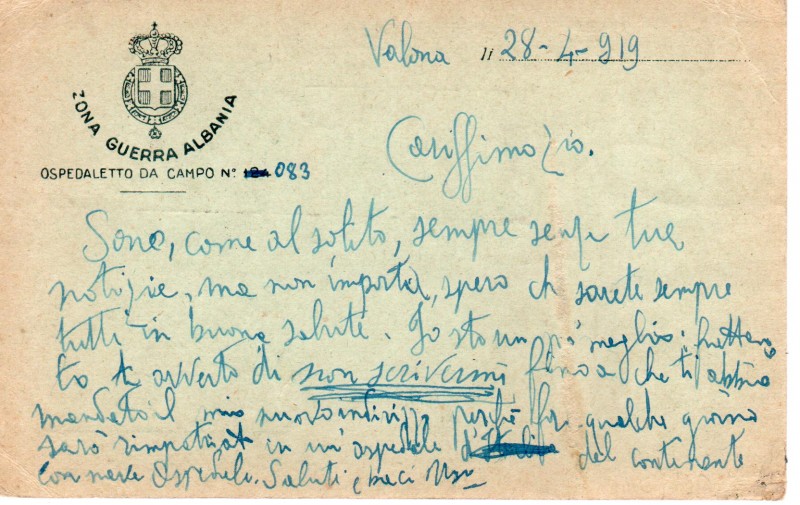 Valona li 28-4-919
ZONA GUERRA ALBANIA
OSPEDALETTO DA CAMPO Nº 124 083
Carissimo Zio.
Sono, come al solito, sempre senza tue
notizie, ma non importa, spero ch sarete sempre
tutti in buona salute. Io sto un pò meglio; frattan
to ti avverto di non scrivermi fino a che ti abbia
mandato il mio nuovo indirizzo perchè fra qualche giorno
sarò rimpatriato in un ospedale del continente
con nave Ospedale. Saluti, baci